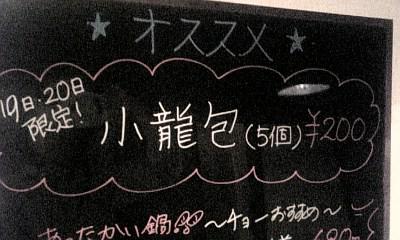 ★オススメ★
19日・20日
限定!
小龍包(5個)¥200
あったかい鍋 〜チョーおすすめ〜